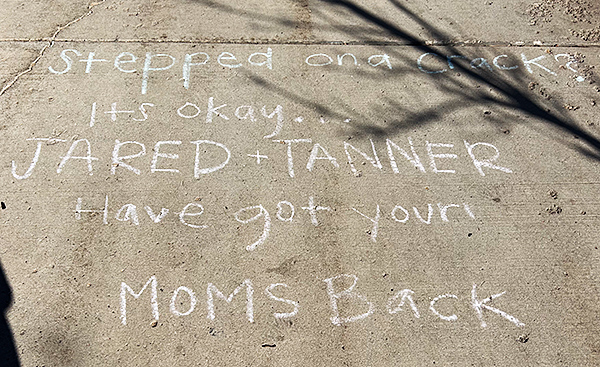 stepped on a crack?
its okay....
JARED + TANNER
Have got your
MOMS Back